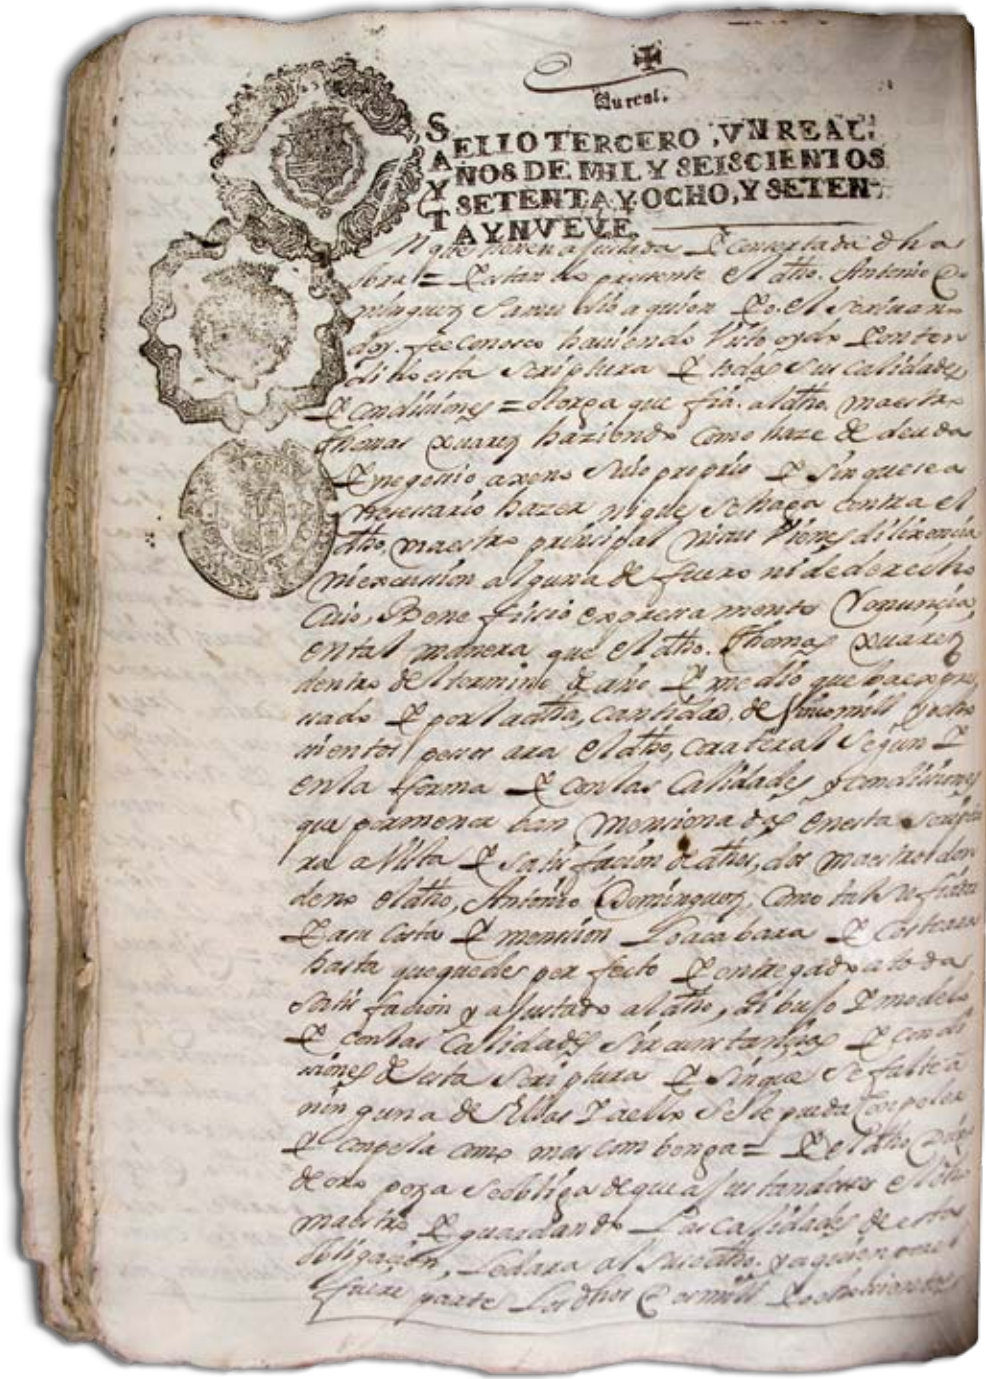 Un real.
SELLO TERCERO, VN REAL,
AÑOS DE MIL Y SEISCIENTOS
Y SETENTA Y OCHO, Y SETEN-
TA Y NVEVE.
que tienen ajustada Y consertada dha
obra = Y estando presente el dho. Antonio Do
minguez a quien Yo. el scriuano
doy. fee conosco hauiendo visto oydo Y enten
dido esta scriptura Y todas sus calidades
Y condisiones = otorga que fia. al dho, maestro
Thomas xuares haziendo como haze de deuda
Y negosio axeno suio proprio Y sin que sea
nesesario hazer ni que se haga contra el
dho, maestro prinsipal ni sus vienes dilixensia
ni excursion alguna de fuero ni de derecho
cuio, Benefisio expresamente renunçia,
en tal manera que el dho. Thomas xuares
dentro del termino de año Y medio que ba expre
sado Y por la dha, cantidad. de mill y ocho
sientos pesos ara el dho, colateral segun Y
en la forma Y con las calidades y condisiones
que por menor ban mensionadas en esta scriptu
ra a vista Y satisfasion de dhos, dos maestros don
de no el dho, Antonio Dominguez, como tal su fiador
Y a su costa Y mension Lo acabara Y costeara
hasta que quede perfecto Y entregado a toda
satisfasion y ajustado al dho, dibujo Y modelo
Y con las calidades sircunstansias Y condi
siones de esta scriptura Y sin que se falte a
ninguna de ellas Y a ello se le pueda conpeler
Y conpela como mas conbenga = Y el dho
de oropeza se obliga de que ajustandose el dho
maestro Y guardando Las calidades de esta
obligasion, Le dara al suso dho. y a quien
fuere parte Los dhos Dos mill Y ochosientos